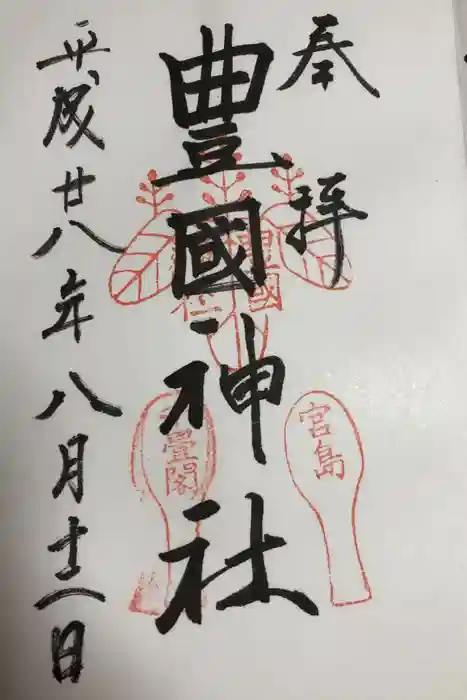 奉拝
豊國神社
平成廿八年八月十二日
宮島
千畳閣